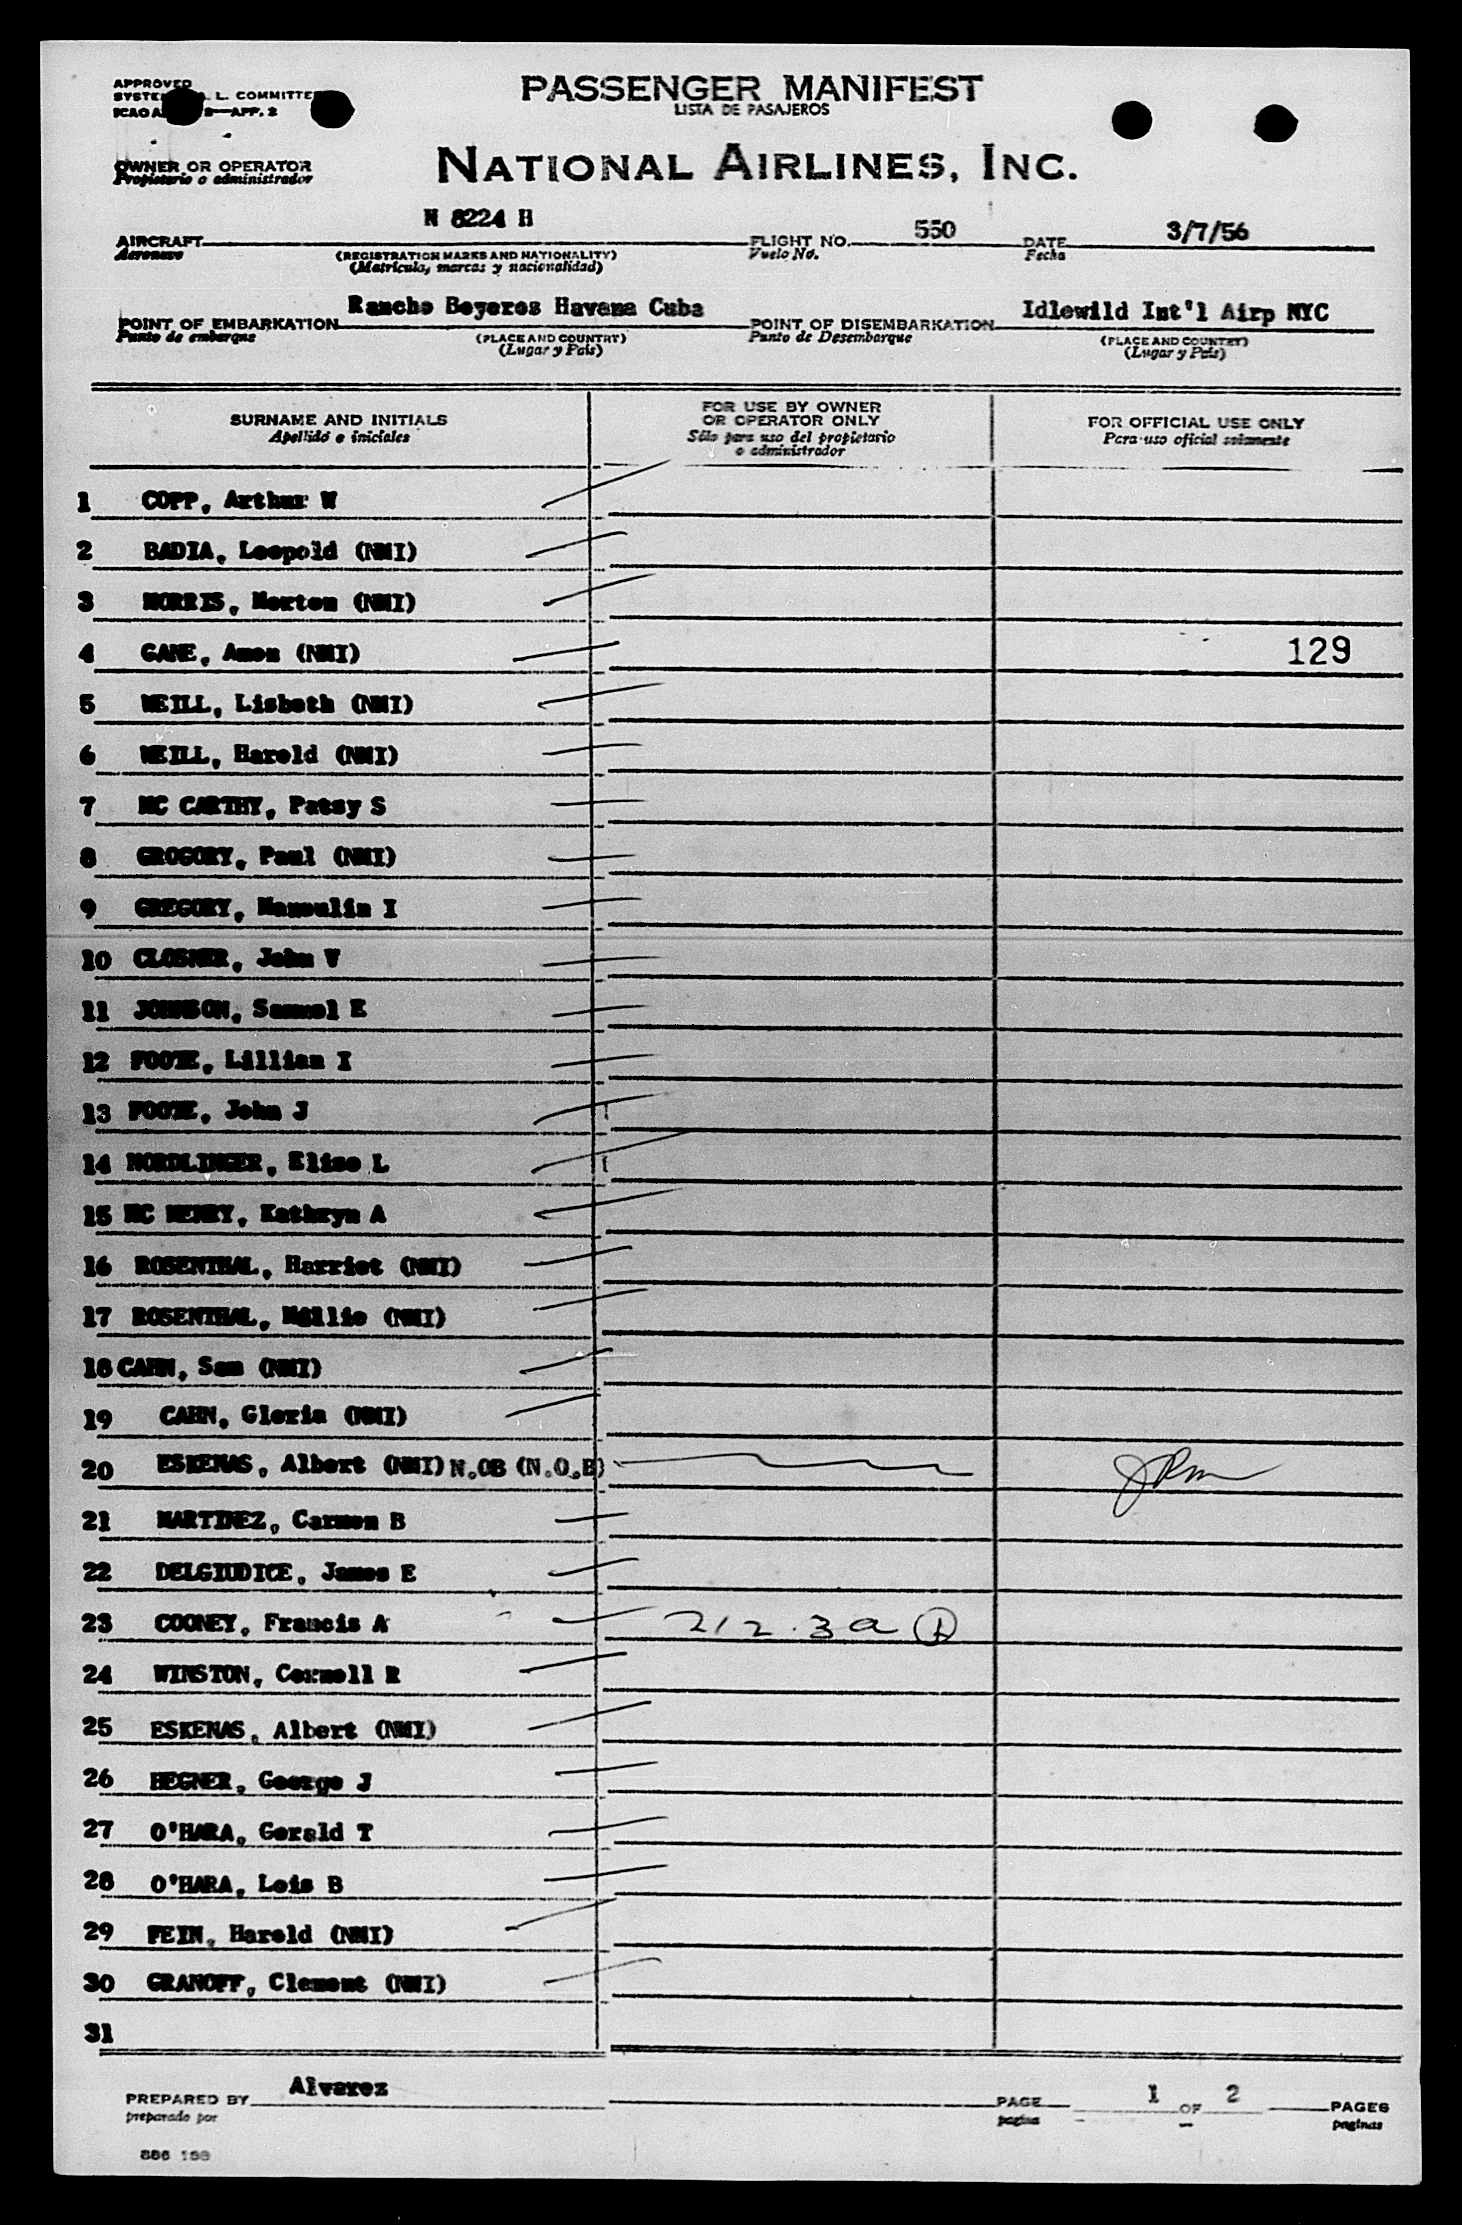 APPROVED
L. COMMITTEE
APP. 2
PASSENGER MANIFEST
LISTA DE PASAJEROS
OWNER OR OPERATOR
Propietario o administrador
NATIONAL AIRLINES, INC.
N 8224 H
550
3/7/56
AIRCRAFT
Aeronave
(REGISTRATION MARKS AND NATIONALITY)
(Matricula, marcas y nacionalidad)
FLIGHT NO.
Vuelo No.
DATE
Fecha
Rancho Boyeros Havana Cuba
Idlewild Int'l Airp NYC
POINT OF EMBARKATION
Punto de embarque
(PLACE AND COUNTRY)
(Lugar y Pais)
POINT OF DISEMBARKATION
Punto de Desembarque
(PLACE AND COUNTRY)
(Lugar y Pais)
SURNAME AND INITIALS
Apellido e iniciales
FOR USE BY OWNER
OR OPERATOR ONLY
Sólo para uso del propietario
o administrador
FOR OFFICIAL USE ONLY
Para uso oficial solamente
1 COPP, Arthur W
2 BADIA, Leopold (NMI)
3 MORRIS, Morton (NMI)
4 GANE, Amon (NMI) 129
5 WEILL, Lisbeth (NMI)
6 WEILL, Harold (NMI)
7 MC CARTHY, Patsy S
8 GROGORY, Paul (NMI)
9 GREGORY, I
10 CLOSNER, John V
11 JOHNSON, Samuel E
12 FOOTE, Lillian I
13 FOOTE, John J
14 NORDLINGER, Elise L
15 MC HENRY, Kathryn A
16 ROSENTHAL, Harriet (NMI)
17 ROSENTHAL, Millie (NMI)
18 CAHN, Sam (NMI)
19 CAHN, Gloria (NMI)
20 ESKENAS, Albert (NMI) N.OB (N.O.B)
21 MARTINEZ, Carmen B
22 DELGIUDICE, James E
23 COONEY, Francis A 212.3a
24 WINSTON, Cormell R
25 ESKENAS, Albert (NMI)
26 HEGNER, George J
27 O'HARA, Gerald T
28 O'HARA, Lois B
29 FEIN, Harold (NMI)
30 GRANOFF, Clement (NMI)
31
PREPARED BY Alvarez
preparado por
PAGE 1 OF 2 PAGES
pagina
paginas